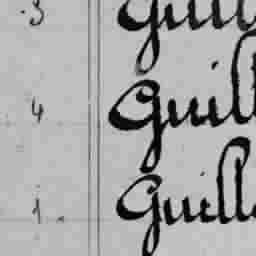 3 Guill
4 Guill
1. Guill